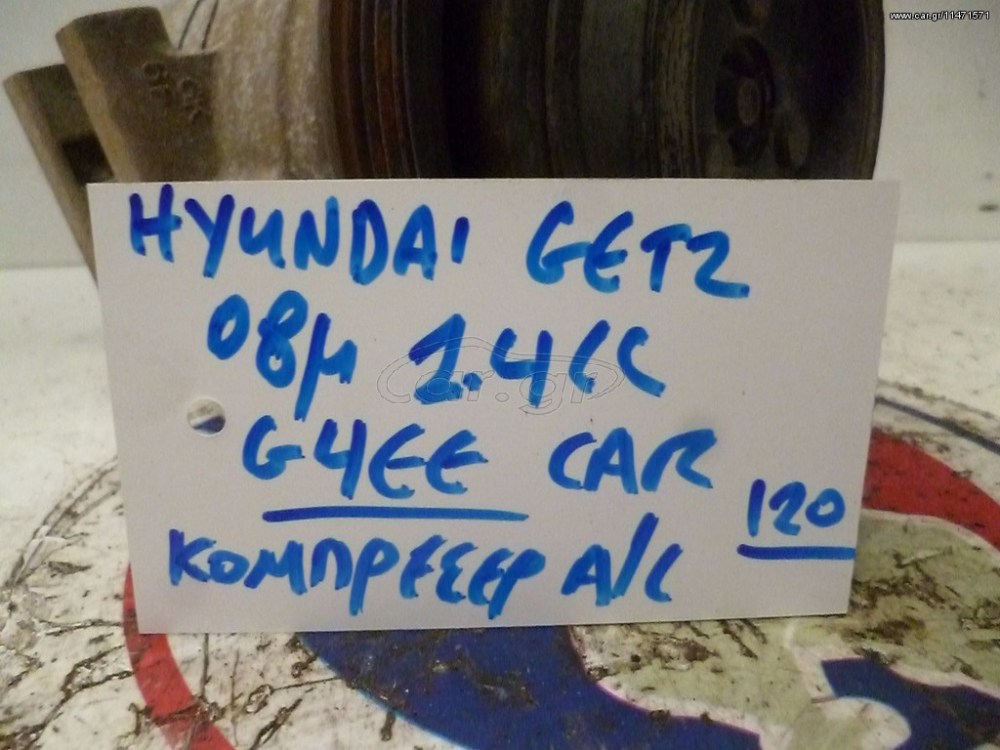 www.car.gr/11471571
HYUNDAI GETZ
08μ 1.4CC
car.gr
G4EE CAR
120
ΚΟΜΠΡΕΣΕΡ A/C